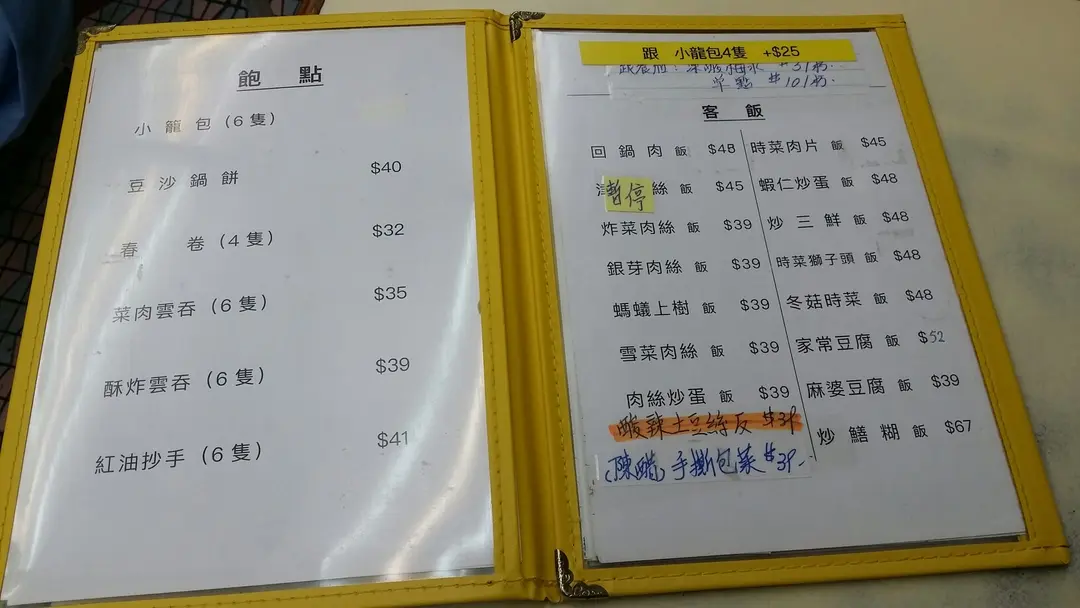 飽 點
小 籠 包 (6 隻)
豆 沙 鍋 餅 $40
春 卷 (4 隻) $32
菜肉雲吞 (6 隻) $35
酥炸雲吞 (6 隻) $39
紅油抄手 (6 隻) $41
跟 小龍包4隻 +$25
單點 $10/杯.
客 飯
回 鍋 肉 飯 $48 時菜肉片 飯 $45
暫停 絲 飯 $45 蝦仁炒蛋 飯 $48
炸菜肉絲 飯 $39 炒 三 鮮 飯 $48
銀芽肉絲 飯 $39 時菜獅子頭 飯 $48
螞蟻上樹 飯 $39 冬菇時菜 飯 $48
雪菜肉絲 飯 $39 家常豆腐 飯 $52
肉絲炒蛋 飯 $39 麻婆豆腐 飯 $39
酸辣土豆絲反 $39 炒 鱔 糊 飯 $67
(陳醋) 手撕包菜 $39.-